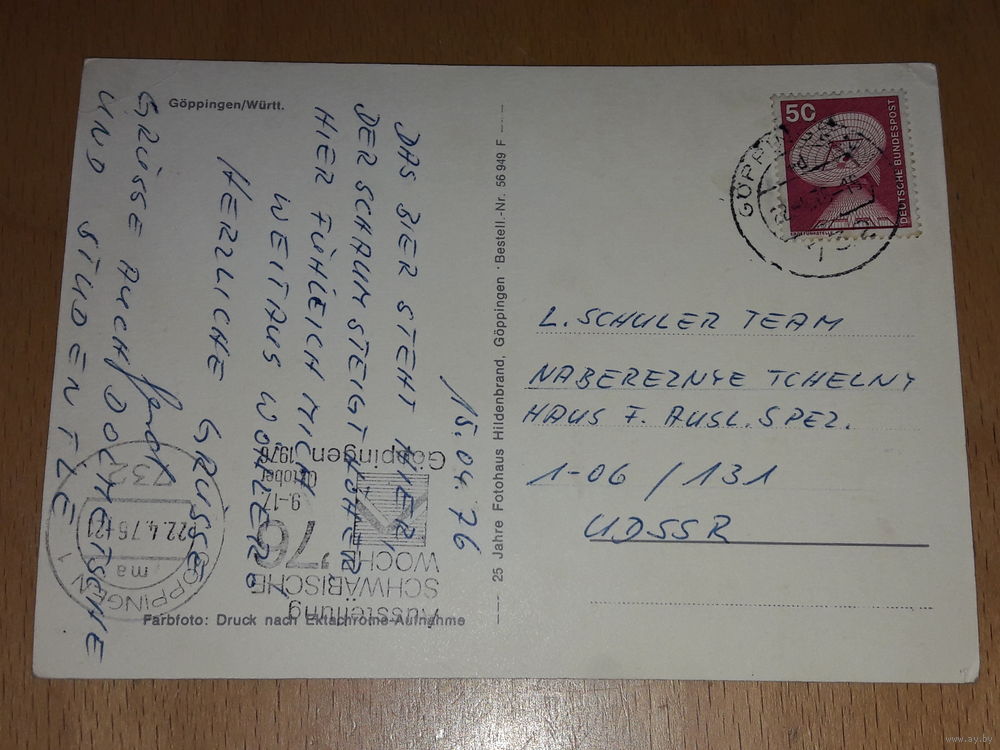 Göppingen/Württ.
15.04.76
DAS BIER STEHT HIER
DER SCHAUM STEIGT HÖHER
HIER FÜHLE ICH MICH
WEITAUS WOHLER!
HERZLICHE GRÜSSE
GRÜSSE AUCH DOLMETSCHE
UND STUDENTLE
Farbfoto: Druck nach Ektachrome-Aufnahme
25 Jahre Fotohaus Hildenbrand, Göppingen · Bestell.-Nr. 56 949 F
50
DEUTSCHE BUNDESPOST
L. SCHULER TEAM
NABEREZNYE TCHELNY
HAUS F. AUSL. SPEZ.
1-06 / 131
UDSSR
Ausstellung
SCHWÄBISCHE
WOCHE
'76
9.-17.
Oktober
1976
Göppingen
GÖPPINGEN 1
ma
22.4.76-21
732
www.ay.by